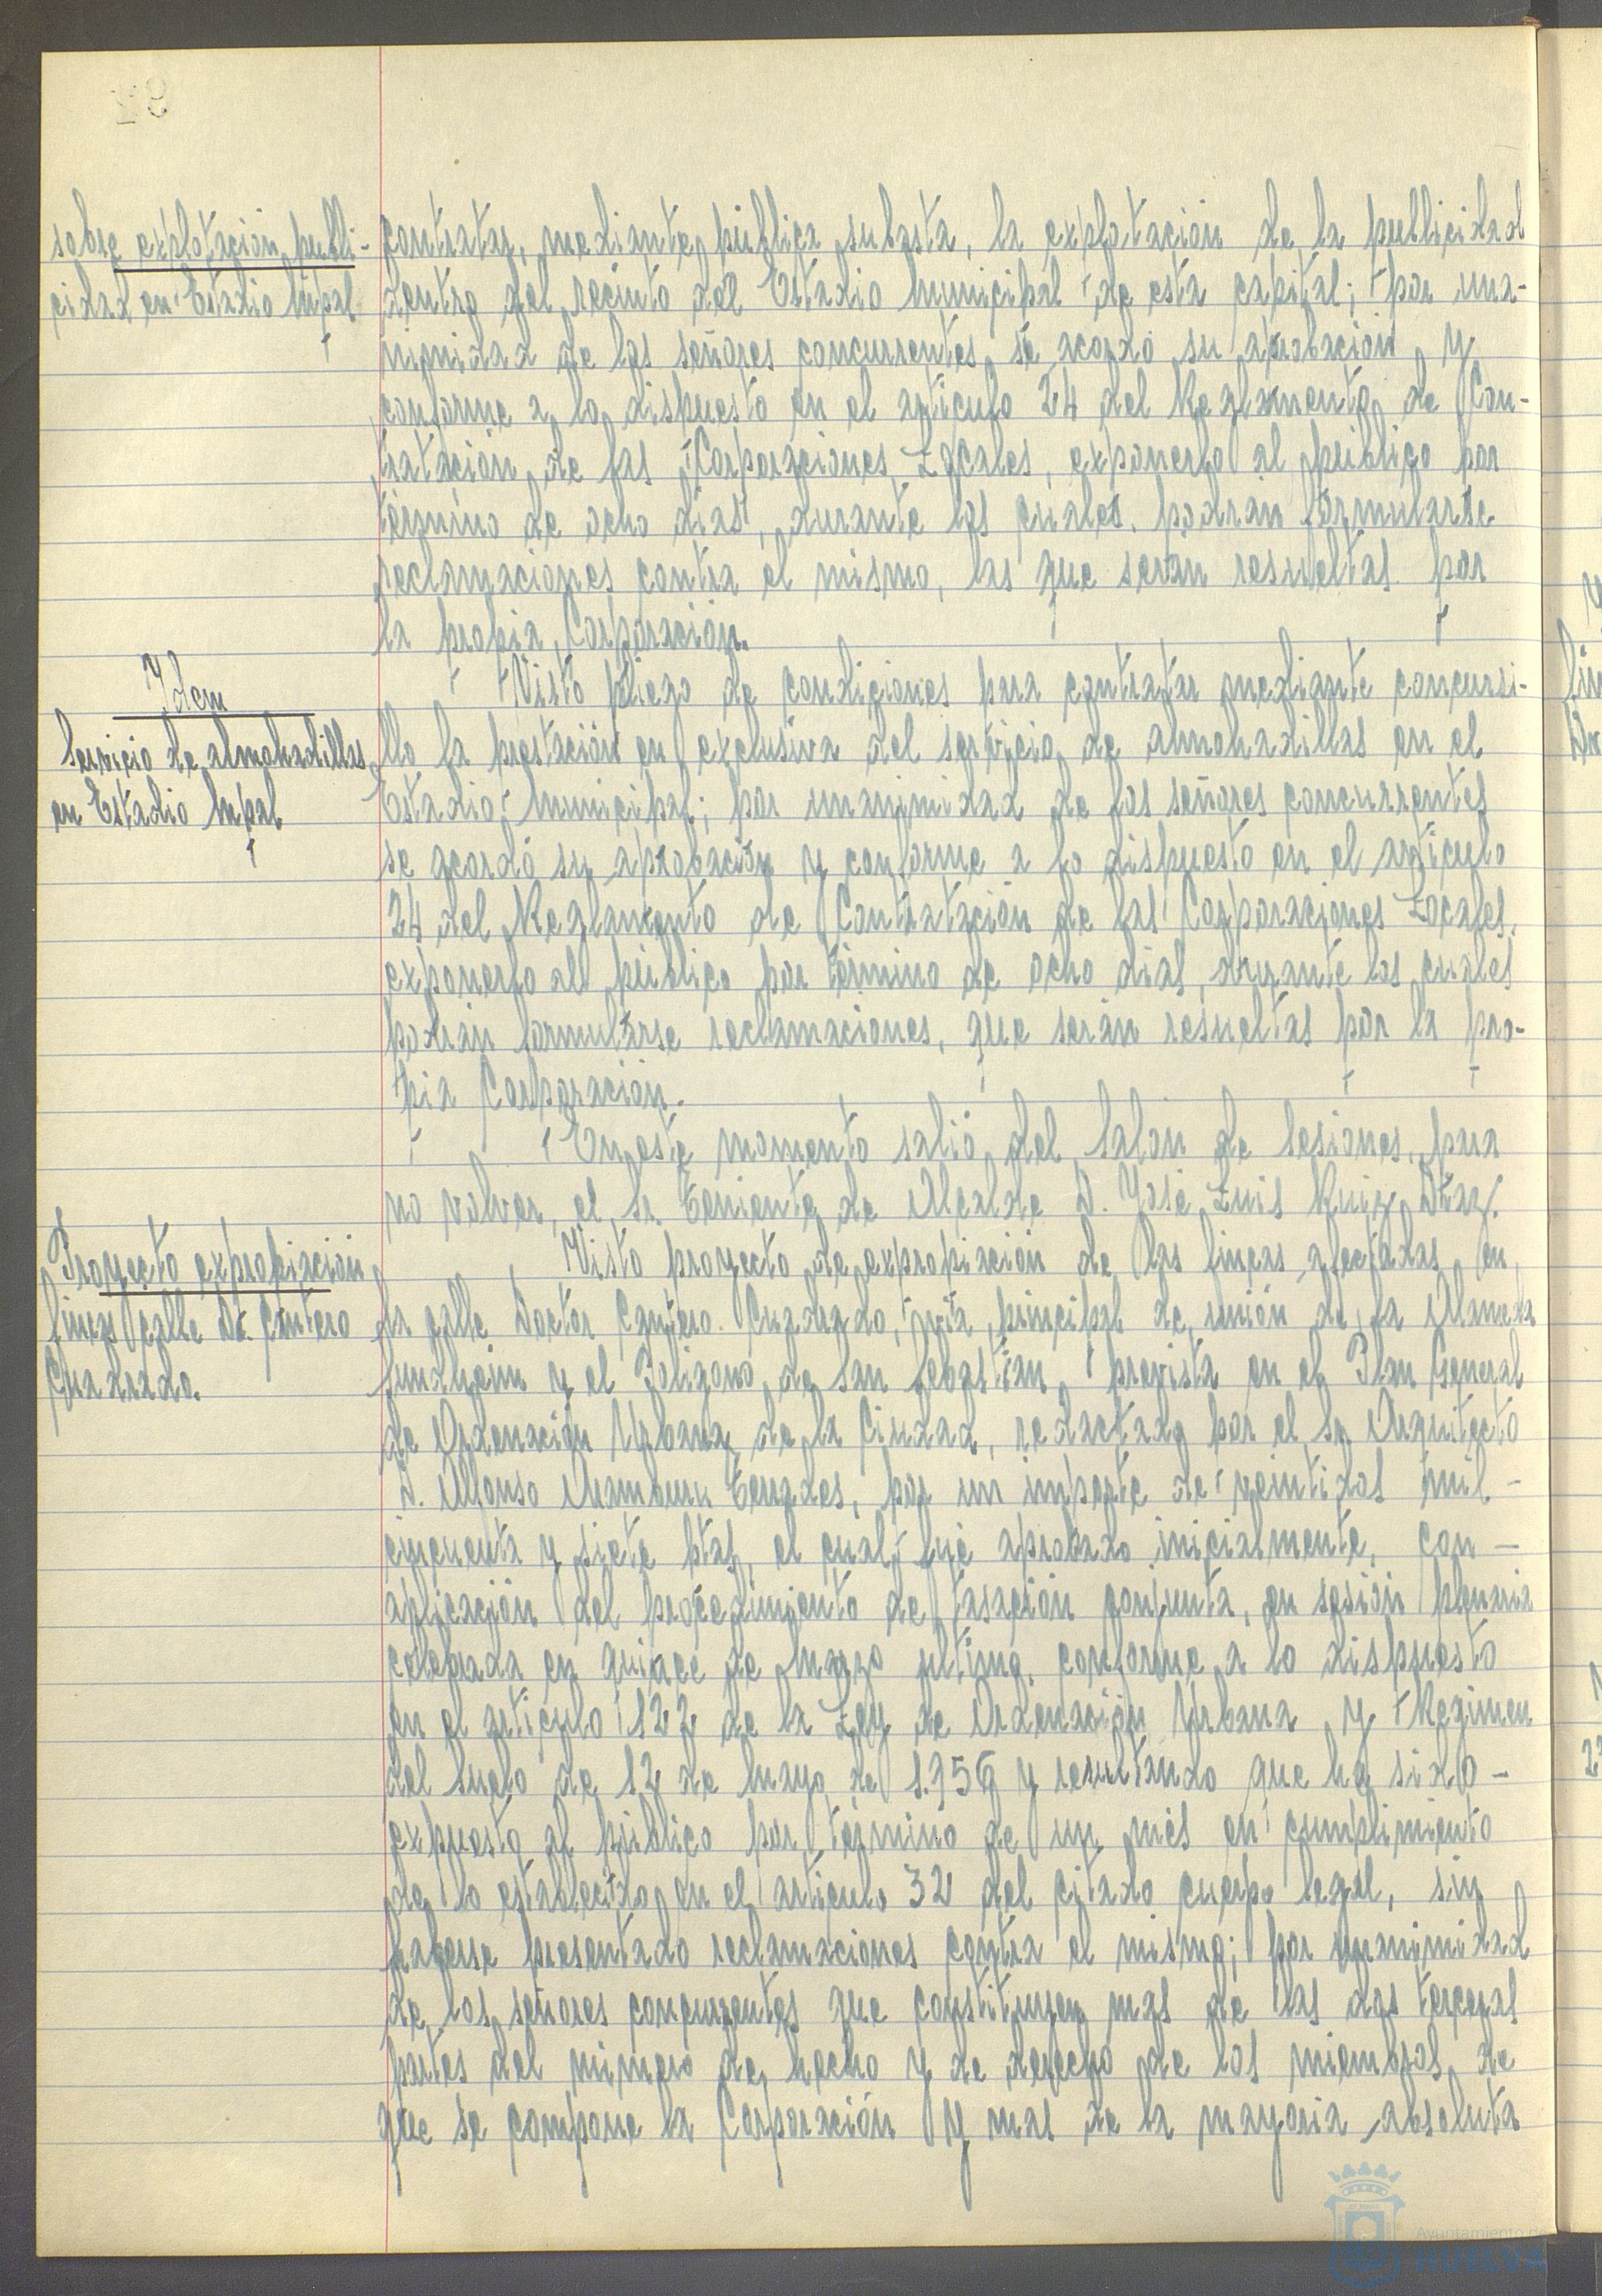 sobre explotación publi-
cidad en Estadio Mpal
contratar, mediante pública subasta, la explotación de la publicidad
dentro del recinto del Estadio Municipal de esta capital; por una-
nimidad de los señores concurrentes se acordó su aprobación y
conforme a lo dispuesto en el artículo 24 del Reglamento de Con-
tratación de las Corporaciones Locales, exponerlo al público por
término de ocho días, durante los cuales podrán formularse
reclamaciones contra el mismo, las que serán resueltas por
la propia Corporación.
Idem
Servicio de almohadillas
en Estadio Mpal
Visto pliego de condiciones para contratar mediante concursi-
llo la prestación en exclusiva del servicio de almohadillas en el
Estadio Municipal; por unanimidad de los señores concurrentes
se acordó su aprobación y conforme a lo dispuesto en el artículo
24 del Reglamento de Contratación de las Corporaciones Locales,
exponerlo al público por término de ocho días, durante los cuales
podrán formularse reclamaciones, que serán resueltas por la pro-
pia Corporación.
En este momento salió del Salón de Sesiones, para
no volver, el Sr. Teniente de Alcalde D. José Luis Ruiz Díaz.
Proyecto expropiación
fincas calle Dr. Cantero
Cuadrado.
Visto proyecto de expropiación de las fincas afectadas en
la calle Doctor Cantero Cuadrado, vía principal de unión de la Alameda
Sundheim y el Polígono de San Sebastián, prevista en el Plan General
de Ordenación Urbana de la Ciudad, redactado por el Sr. Arquitecto
D. Alfonso Aramburu Terrades, por un importe de veintidos mil -
cincuenta y siete ptas, el cual fué aprobado inicialmente, con -
aplicación del procedimiento de tasación conjunta, en sesión plenaria
celebrada en quince de Marzo último, conforme a lo dispuesto
en el artículo 122 de la Ley de Ordenación Urbana y Regimen
del Suelo de 12 de Mayo de 1.956 y resultando que ha sido -
expuesto al público por término de un mes en cumplimiento
de lo establecido en el artículo 32 del citado cuerpo legal, sin
haberse presentado reclamaciones contra el mismo; por unanimidad
de los señores concurrentes que constituyen mas de las dos terceras
partes del número de hecho y de derecho de los miembros de
que se compone la Corporación y mas de la mayoría absoluta
Ayuntamiento de
HUELVA